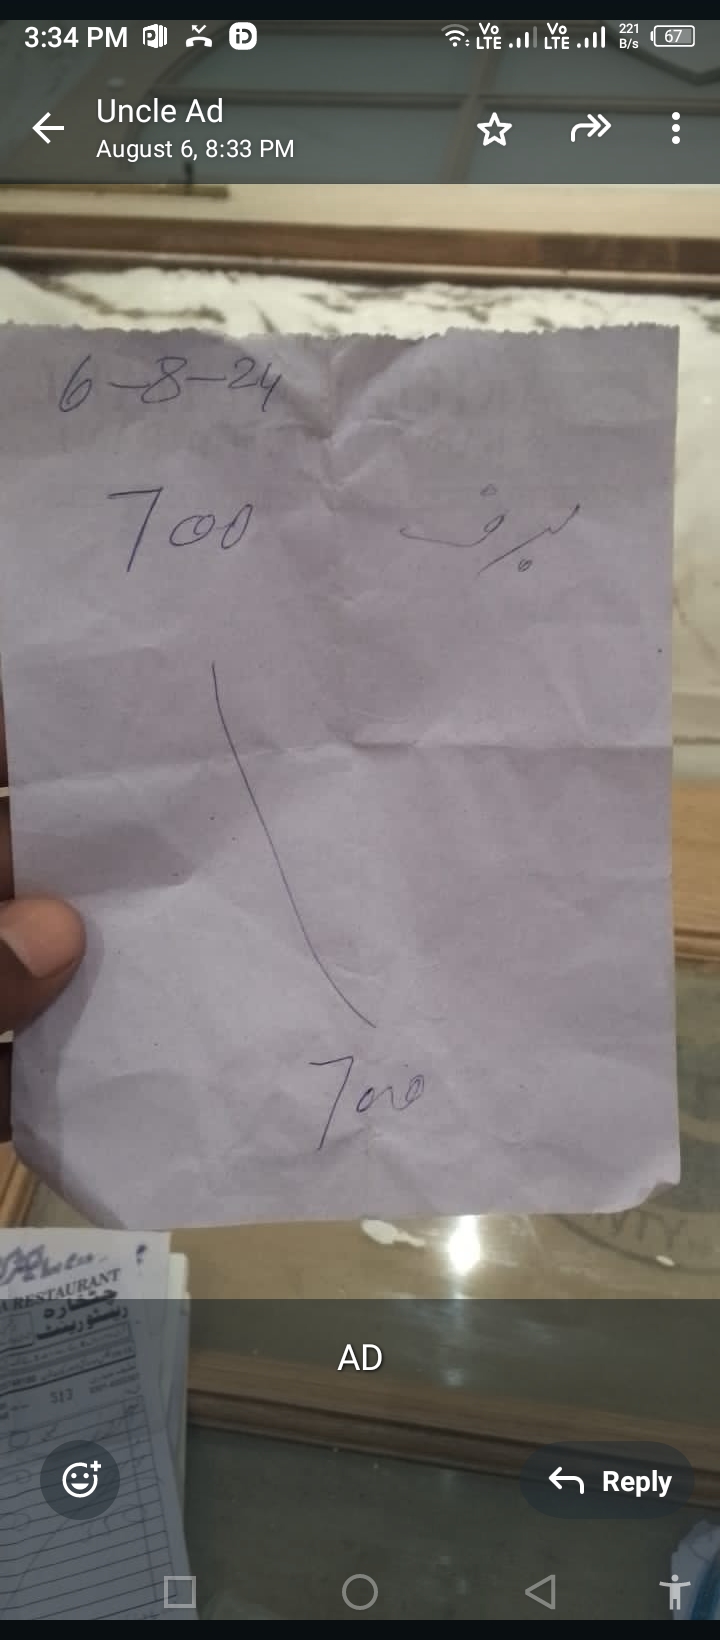 3:34 PM
Vo LTE Vo LTE 221 B/s 67
Uncle Ad
August 6, 8:33 PM
6-8-24
برف 700
700
RESTAURANT
چتخارہ
ریسٹورینٹ
513
AD
Reply